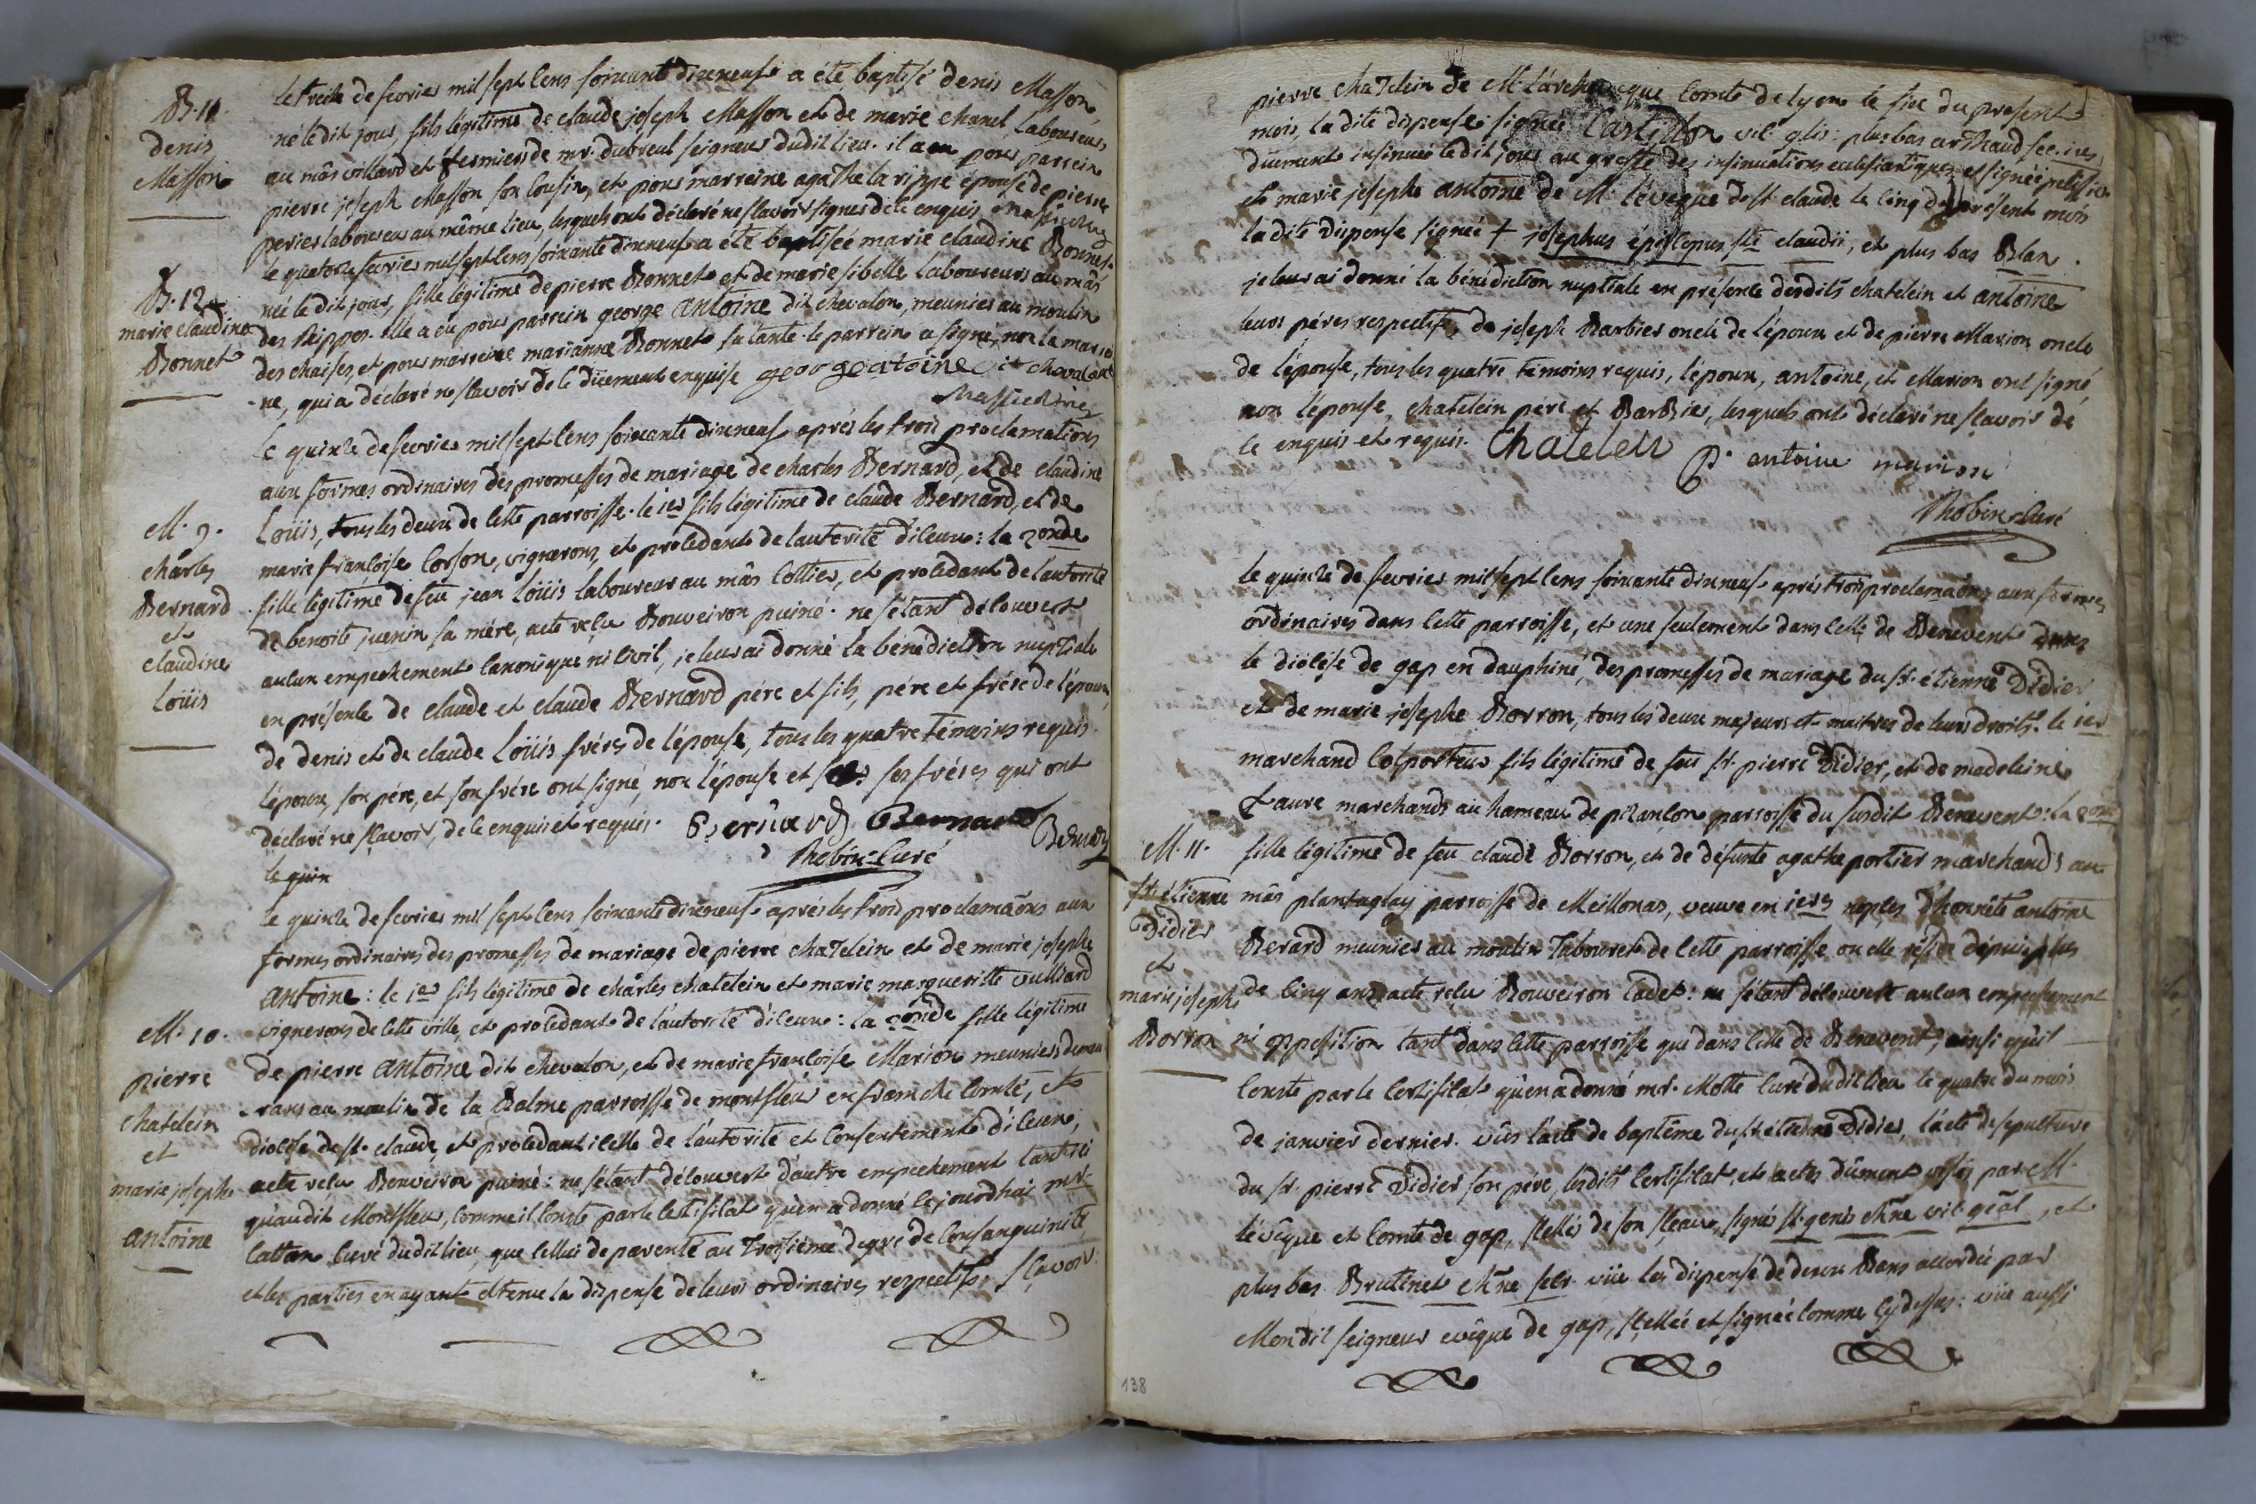 B. 11.
denis
Masson
le treize de fevrier mil sept cens soixante dixneuf a été baptisé denis Masson,
né le dit jour, fils légitime de claude joseph Masson et de marie chanel laboureurs
au mâs villard et fermiers de mr. dubreul seigneur dudit lieu. il a eu pour parrein
pierre joseph Masson son cousin, et pour marreine agathe la rippe épouse de pierre
perier laboureur au même lieu, lesquels ont déclaré ne sçavoir signer de ce enquis
B. 12
marie claudine
Bonnet
le quatorze fevrier mil sept cens soixante dixneuf a été baptisée marie claudine Bonnet
née le dit jour, fille légitime de pierre Bonnet et de marie sibelle laboureurs au mâs
des Rippes. elle a eu pour parrein george antoine dit chevalon, meunier au moulin
des chaises, et pour marreine marianne Bonnet sa tante. le parrein a signé, non la marrei
-ne, qui a déclaré ne sçavoir de ce düement enquise
M. 9.
charles
Bernard
et
claudine
Loüis
le quinze de fevrier mil sept cens soixante dixneuf aprés les trois proclamations
aux formes ordinaires des promesses de mariage de charles Bernard, et de claudine
Loüis, tous les deux de cette parroisse. le 1er fils légitime de claude Bernard, et de
marie françoise Corson, vignerons, et procedant de l'autorité d'iceux: la 2onde
fille légitime de feu jean Loüis laboureur au mâs Collier, et procedant de l'autorité
de benoite juenin sa mére, acte reçu Bouveiron puiné. ne s'étant découvert
aucun empechement canonique ni civil, je leur ai donné la bénédiction nuptiale
en présence de claude et claude Bernard pére et fils, pére et frére de l'époux,
de denis et de claude Loüis fréres de l'épouse, tous les quatre témoins requis.
l'époux, son pére, et son frére ont signé, non l'épouse et ses fréres qui ont
déclaré ne sçavoir, de ce enquis et requis. Bernard Bernard Bernard
Robin Curé
le quin
M. 10.
pierre
chatelein
et
marie josephe
antoine
le quinze de fevrier mil sept cens soixante dixneuf aprés les trois proclamaõns aux
formes ordinaires des promesses de mariage de pierre chatelein et de marie josephe
antoine: le 1er fils légitime de charles chatelein et marie margueritte vulliard
vignerons de cette ville, et procedant de l'autorité d'iceux: la 2onde fille légitime
de pierre antoine dit chevalon, et de marie françoise Marion meuniers demeu
-rans au moulin de la Balme parroisse de montfleur en franche Comté,
diocése de st. claude, et procedant icelle de l'autorité et consentement d'iceux,
acte reçu Bouveiron puiné: ne s'étant découvert d'autre empechement tant ici
qu'audit Montfleur, comme il conste par le certificat qu'en a donné ce jourd'hui mr.
Cattan Curé dudit lieu, que celui de parenté au troisiéme degré de consanguinité,
et les parties en ayant obtenu la dispense de leurs ordinaires respectifs, sçavoir.
pierre chatelein de M. l'archeveque Comte de lyon le six du present
mois, la dite dispense signée Castillon vic. glis: plus bas arthaud
düement insinuée le dit jour au greffe des insinuations ecclésiastiques et signée
et marie josephe antoine de M. l'éveque de st. claude le cinq du présent mois
la dite dispense signée + josephus épiscopus sti claudii, et plus bas Blan.
je leur ai donné la bénédiction nuptiale en présence desdits chatelein et antoine
leurs péres respectifs, de joseph Barbier oncle de l'époux et de pierre Marion oncle
de l'épouse, tous les quatre témoins requis, l'époux, antoine, et Marion ont signé,
non l'épouse, chatelein pére et Barbier, lesquels ont déclaré ne sçavoir de
ce enquis et requis. Chatelein P. antoine marion
Robin Curé
M. 11.
Sr. étienne
Didier
et
marie josephe
Borron
le quinze de fevrier mil sept cens soixante dixneuf aprés trois proclamaõns aux formes
ordinaires dans cette parroisse, et une seulement dans celle de Benevent dans
le diocése de gap en dauphiné, des promesses de mariage du Sr. étienne Didier
et de marie josephe Borron, tous les deux majeurs et maitres de leurs droits. le 1er
marchand Colporteur fils légitime de feu Sr. pierre Didier, et de madeleine
faure marchands au hameau de pizançon parroisse du susdit Benevent: la 2onde
fille légitime de feu claude Borron, et de défunte agathe portier marchands au
mâs plantaglay parroisse de Meillonas, veuve en 1eres nopces d'honnête antoine
Berard meunier au moulin Tabouret de cette parroisse ou elle réside dépuis plus
de cinq ans, acte reçu Bouveiron cadet: ne s'étant découvert aucun empechement
ni opposition tant dans cette parroisse que dans celle de Benevent, ainsi qu'il
conste par le certificat qu'en a donné mr. Motte Curé dudit lieu le quatre du mois
de janvier dernier. vûs l'acte de baptême du Sr. étienne Didier, l'acte de sepulture
du Sr. pierre Didier son pere, lesdits certificat et actes dûment visés par M.
l'évêque et Comte de gap, scellés de son sceau, signés St. genis chñe vic. gñal, et
plus bas Brutinet chñe secr. vüe la dispense de deux Bans accordée par
Mondit seigneur evêque de gap, scellée et signée comme cy dessus: vüe aussi
138